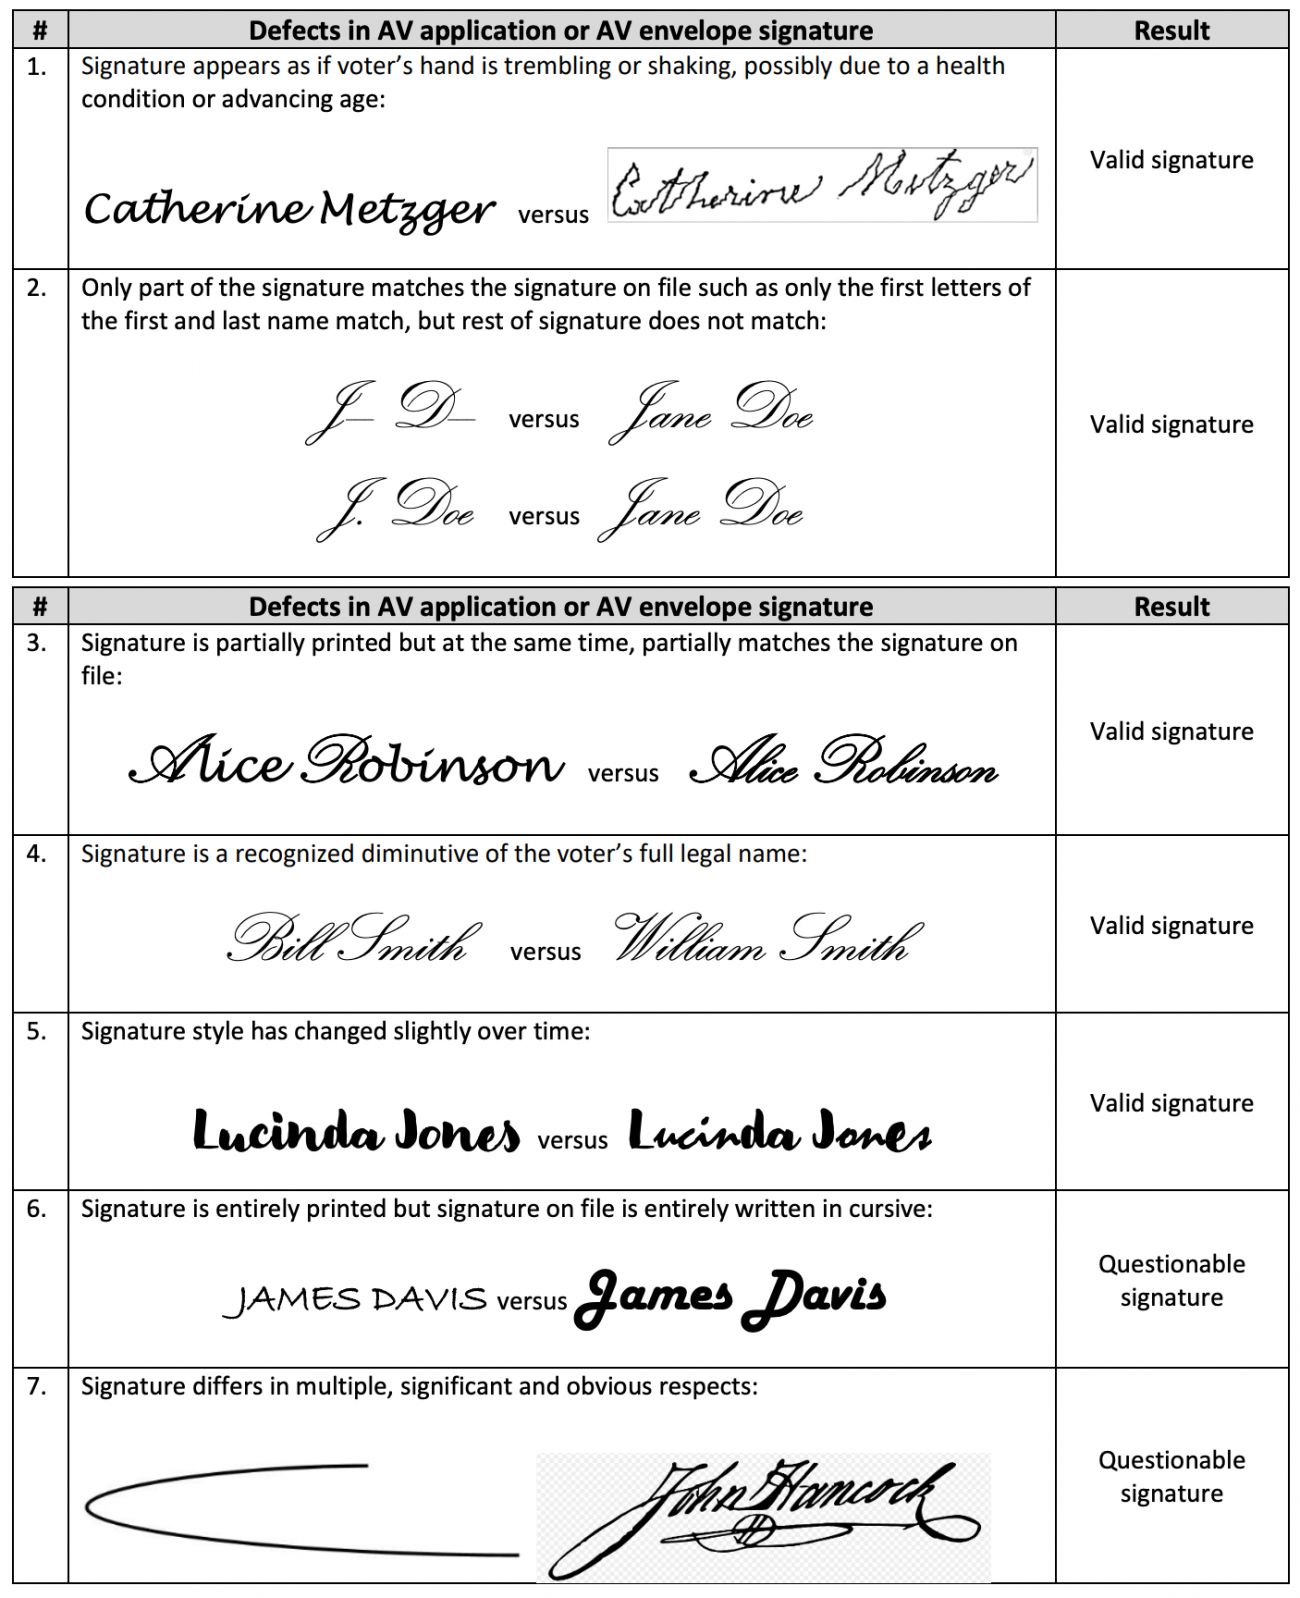 # Defects in AV application or AV envelope signature Result
1. Signature appears as if voter’s hand is trembling or shaking, possibly due to a health
condition or advancing age:
Valid signature
Catherine Metzger versus Catherine Metzger
2. Only part of the signature matches the signature on file such as only the first letters of
the first and last name match, but rest of signature does not match:
J— D— versus Jane Doe
Valid signature
J. Doe versus Jane Doe
# Defects in AV application or AV envelope signature Result
3. Signature is partially printed but at the same time, partially matches the signature on
file:
Valid signature
Alice Robinson versus Alice Robinson
4. Signature is a recognized diminutive of the voter’s full legal name:
Valid signature
Bill Smith versus William Smith
5. Signature style has changed slightly over time:
Valid signature
Lucinda Jones versus Lucinda Jones
6. Signature is entirely printed but signature on file is entirely written in cursive:
Questionable
signature
JAMES DAVIS versus James Davis
7. Signature differs in multiple, significant and obvious respects:
Questionable
signature
John Hancock